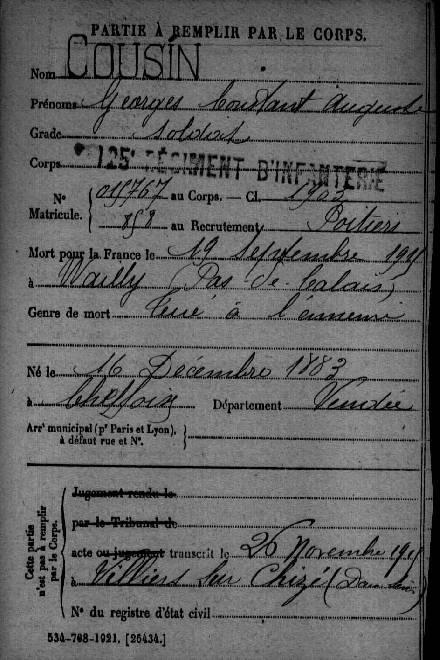 PARTIE À REMPLIR PAR LE CORPS.
Nom COUSIN
Prénoms Georges Constant Auguste
Grade soldat
Corps 125e RÉGIMENT D'INFANTERIE
N° Matricule. { 019767 au Corps. — Cl. 1903
858 au Recrutement Poitiers
Mort pour la France le 19 septembre 191
à Wailly (Pas de Calais)
Genre de mort Tué à l'ennemi
Né le 16 Décembre 1883
à Cheffois Département Vendée
Arrt municipal (pr Paris et Lyon),
à défaut rue et N°.
Cette partie n'est pas à remplir par le Corps.
Jugement rendu le
par le Tribunal de
acte ou jugement transcrit le 26 Novembre 191
à Villiers sur Chizé
N° du registre d'état civil
534-708-1921. [26434.]